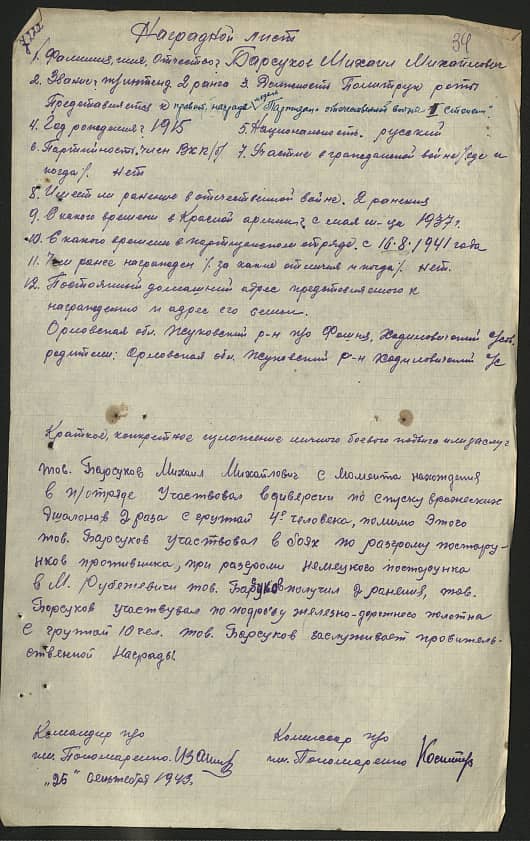 34
Наградной лист
1. Фамилия, имя, Отчество: Барсуков Михаил Михайлович
2. Звание: т/интенд. 2 ранга 3. Должность Политрук роты
Представляется к правит. награде "Партизан отечественной войны II степени"
4. Год рождения: 1915 5. Национальность. русский
6. Партийность: член ВКП/б/ 7. Участие в гражданской войне /где и
когда/. нет
8. Имеет ли ранение в отечественной войне. 2 ранения
9. С какого времени в Красной армии: с мая м-ца 1937г.
10. С какого времени в партизанском отряде. с 16.8.1941 года
11. Чем ранее награжден /за какие отличия и когда/. нет.
12. Постоянный домашний адрес представляемого к
награждению и адрес его семьи.
Орловская обл. Жуковский р-н п/о Фошня, Ходиловичский с/сов.
родители: Орловская обл. Жуковский р-н Ходиловичский с/с
Краткое, конкретное изложение личного боевого подвига или заслуг
тов. Барсуков Михаил Михайлович с момента нахождения
в п/отряде участвовал в диверсии по спуску вражеских
эшалонав 2 раза с групай 4е человека, помимо этого
тов. Барсуков участвовал в боях по разгрому постару-
нков противника, при разгроми немецкого постарунка
в М. Рубежевичи тов. Барсуков получил 2 ранения, тов.
Барсуков участвувал по подрыву железно-дорожного полотна
с групай 10 чел. тов. Барсуков заслуживает провитель-
ственной Награды
Командир п/о Комиссар п/о
им. Пономаренко. им. Пономаренко
"25" сентября 1943г.